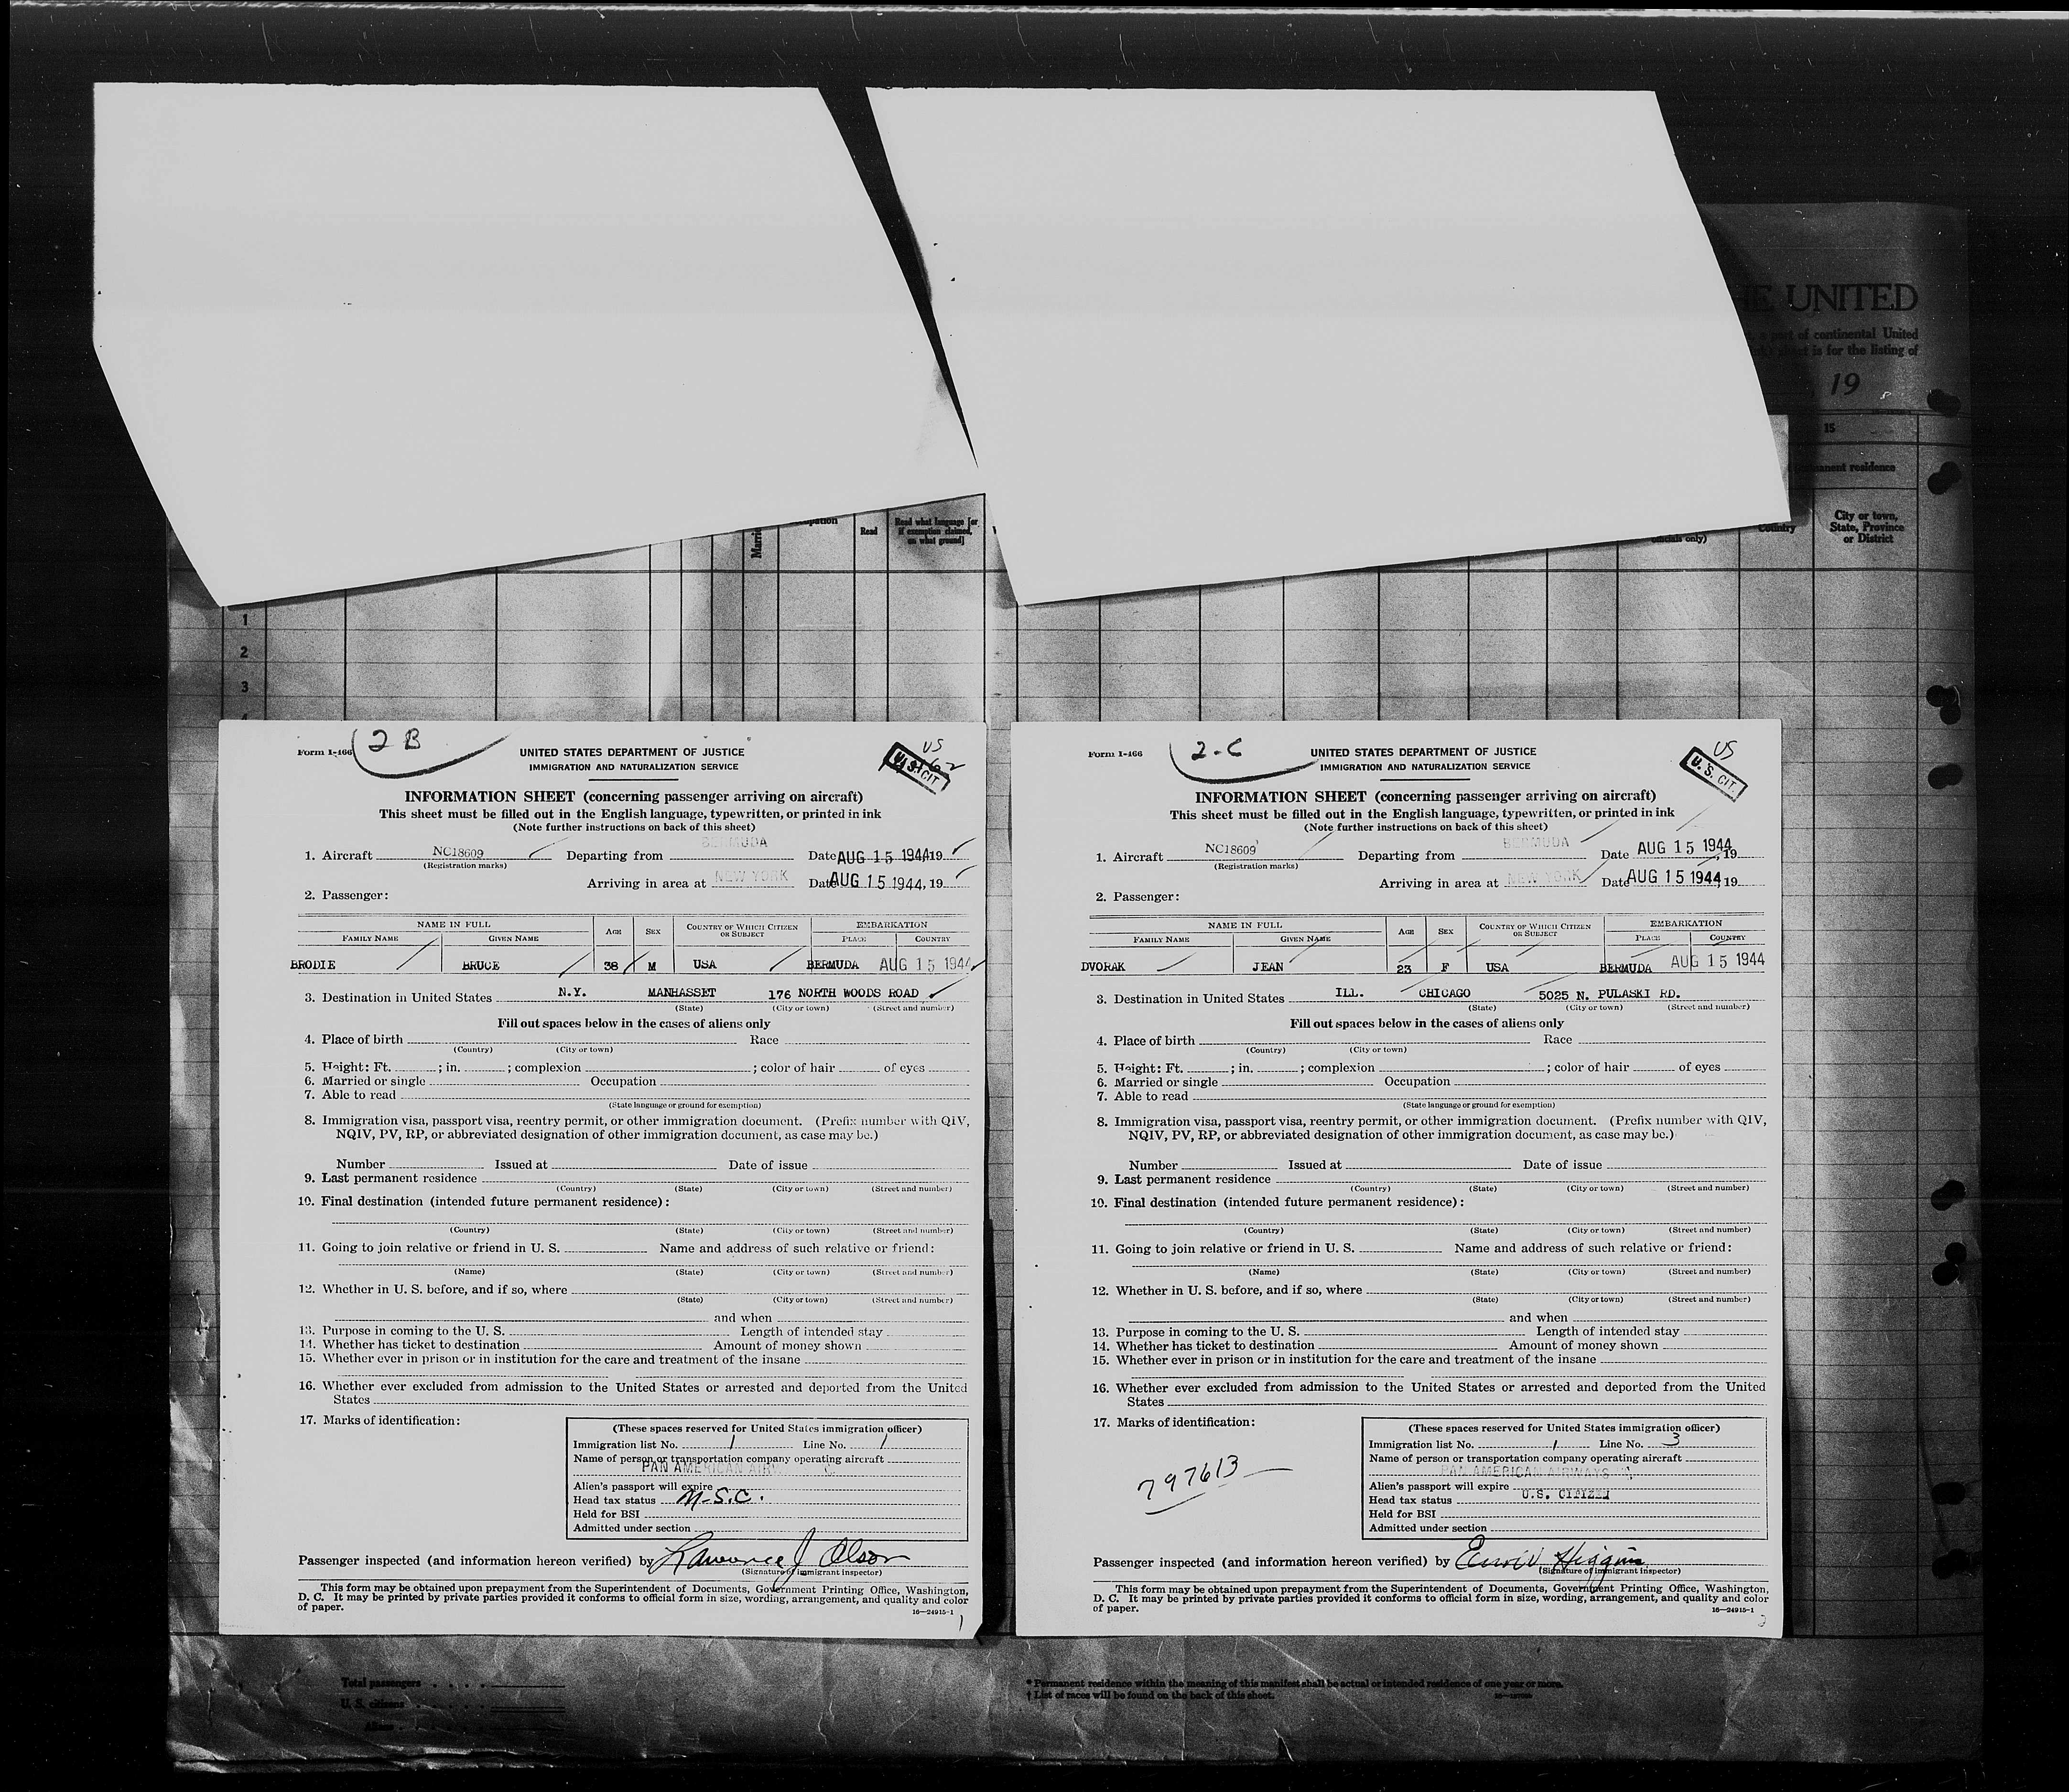 HE UNITED
a part of continental United
sheet is for the listing of
19
15
permanent residence
Married
Read
Read what language [or
if exemption claimed,
on what ground]
officials only)
Country
City or town,
State, Province
or District
1
2
3
Form I-466
2 B
UNITED STATES DEPARTMENT OF JUSTICE
IMMIGRATION AND NATURALIZATION SERVICE
US
U.S. CIT
INFORMATION SHEET (concerning passenger arriving on aircraft)
This sheet must be filled out in the English language, typewritten, or printed in ink
(Note further instructions on back of this sheet)
1. Aircraft NC18609 Departing from BERMUDA Date AUG 15 1944 19
(Registration marks)
Arriving in area at NEW YORK Date AUG 15 1944, 19
2. Passenger:
NAME IN FULL AGE SEX COUNTRY OF WHICH CITIZEN OR SUBJECT EMBARKATION
FAMILY NAME GIVEN NAME PLACE COUNTRY
BRODIE BRUCE 38 M USA BERMUDA AUG 15 1944
3. Destination in United States N.Y. MANHASSET 176 NORTH WOODS ROAD
(State) (City or town) (Street and number)
Fill out spaces below in the cases of aliens only
4. Place of birth Race
(Country) (City or town)
5. Height: Ft. ; in. ; complexion ; color of hair of eyes
6. Married or single Occupation
7. Able to read
(State language or ground for exemption)
8. Immigration visa, passport visa, reentry permit, or other immigration document. (Prefix number with QIV,
NQIV, PV, RP, or abbreviated designation of other immigration document, as case may be.)
Number Issued at Date of issue
9. Last permanent residence
(Country) (State) (City or town) (Street and number)
10. Final destination (intended future permanent residence):
(Country) (State) (City or town) (Street and number)
11. Going to join relative or friend in U. S. Name and address of such relative or friend:
(Name) (State) (City or town) (Street and number)
12. Whether in U. S. before, and if so, where
(State) (City or town) (Street and number)
and when
13. Purpose in coming to the U. S. Length of intended stay
14. Whether has ticket to destination Amount of money shown
15. Whether ever in prison or in institution for the care and treatment of the insane
16. Whether ever excluded from admission to the United States or arrested and deported from the United
States
17. Marks of identification:
(These spaces reserved for United States immigration officer)
Immigration list No. 1 Line No. 1
Name of person or transportation company operating aircraft
PAN AMERICAN AIRW
Alien's passport will expire
Head tax status M-S.C.
Held for BSI
Admitted under section
Passenger inspected (and information hereon verified) by Lawrence J Olson
(Signature of immigrant inspector)
This form may be obtained upon prepayment from the Superintendent of Documents, Government Printing Office, Washington,
D. C. It may be printed by private parties provided it conforms to official form in size, wording, arrangement, and quality and color
of paper.
16—24915-1
1
Form I-466
2-C
UNITED STATES DEPARTMENT OF JUSTICE
IMMIGRATION AND NATURALIZATION SERVICE
US
U.S. CIT.
INFORMATION SHEET (concerning passenger arriving on aircraft)
This sheet must be filled out in the English language, typewritten, or printed in ink
(Note further instructions on back of this sheet)
1. Aircraft NC18609 Departing from BERMUDA Date AUG 15 1944, 19
(Registration marks)
Arriving in area at NEW YORK Date AUG 15 1944, 19
2. Passenger:
NAME IN FULL AGE SEX COUNTRY OF WHICH CITIZEN OR SUBJECT EMBARKATION
FAMILY NAME GIVEN NAME PLACE COUNTRY
DVORAK JEAN 23 F USA BERMUDA AUG 15 1944
3. Destination in United States ILL. CHICAGO 5025 N. PULASKI RD.
(State) (City or town) (Street and number)
Fill out spaces below in the cases of aliens only
4. Place of birth Race
(Country) (City or town)
5. Height: Ft. ; in. ; complexion ; color of hair of eyes
6. Married or single Occupation
7. Able to read
(State language or ground for exemption)
8. Immigration visa, passport visa, reentry permit, or other immigration document. (Prefix number with QIV,
NQIV, PV, RP, or abbreviated designation of other immigration document, as case may be.)
Number Issued at Date of issue
9. Last permanent residence
(Country) (State) (City or town) (Street and number)
10. Final destination (intended future permanent residence):
(Country) (State) (City or town) (Street and number)
11. Going to join relative or friend in U. S. Name and address of such relative or friend:
(Name) (State) (City or town) (Street and number)
12. Whether in U. S. before, and if so, where
(State) (City or town) (Street and number)
and when
13. Purpose in coming to the U. S. Length of intended stay
14. Whether has ticket to destination Amount of money shown
15. Whether ever in prison or in institution for the care and treatment of the insane
16. Whether ever excluded from admission to the United States or arrested and deported from the United
States
17. Marks of identification:
797613
(These spaces reserved for United States immigration officer)
Immigration list No. 1 Line No. 3
Name of person or transportation company operating aircraft
PAN AMERICAN AIRWAYS
Alien's passport will expire
Head tax status U.S. CITIZEN
Held for BSI
Admitted under section
Passenger inspected (and information hereon verified) by Higgins
(Signature of immigrant inspector)
This form may be obtained upon prepayment from the Superintendent of Documents, Government Printing Office, Washington,
D. C. It may be printed by private parties provided it conforms to official form in size, wording, arrangement, and quality and color
of paper.
16—24915-1
2
Total passengers
U. S. citizens
Aliens
* Permanent residence within the meaning of this manifest shall be actual or intended residence of one year or more.
† List of races will be found on the back of this sheet.